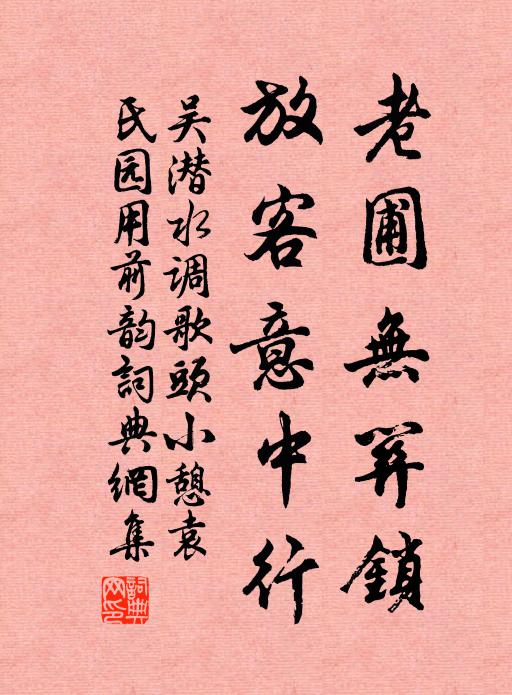 老圃無關鎖
放客意中行
吴潜水调歌頭小憩袁
氏园用前韵詞典網集
詞典網印